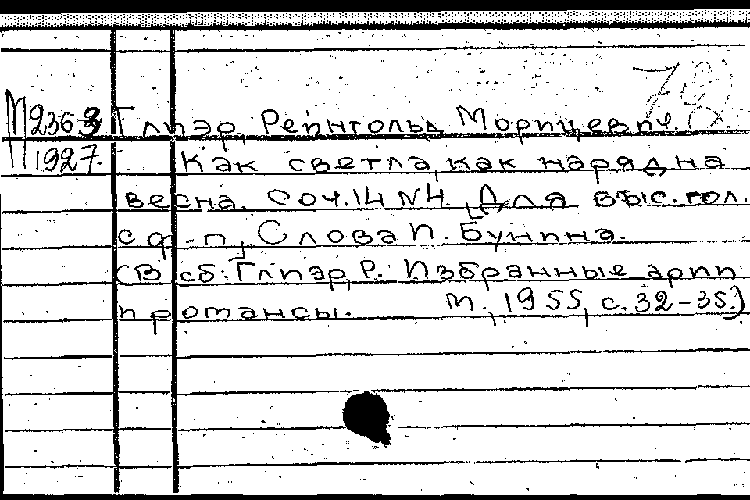 78
М2363 Глиэр, Рейнгольд Морицевич.
1927. Как светла, как нарядна
весна. Соч.14 №4, Для выс. гол.
с ф-п, Слова И. Бунина.
(В сб: Глиэр, Р. Избранные арии
и романсы. М, 1955, с. 32-35.)